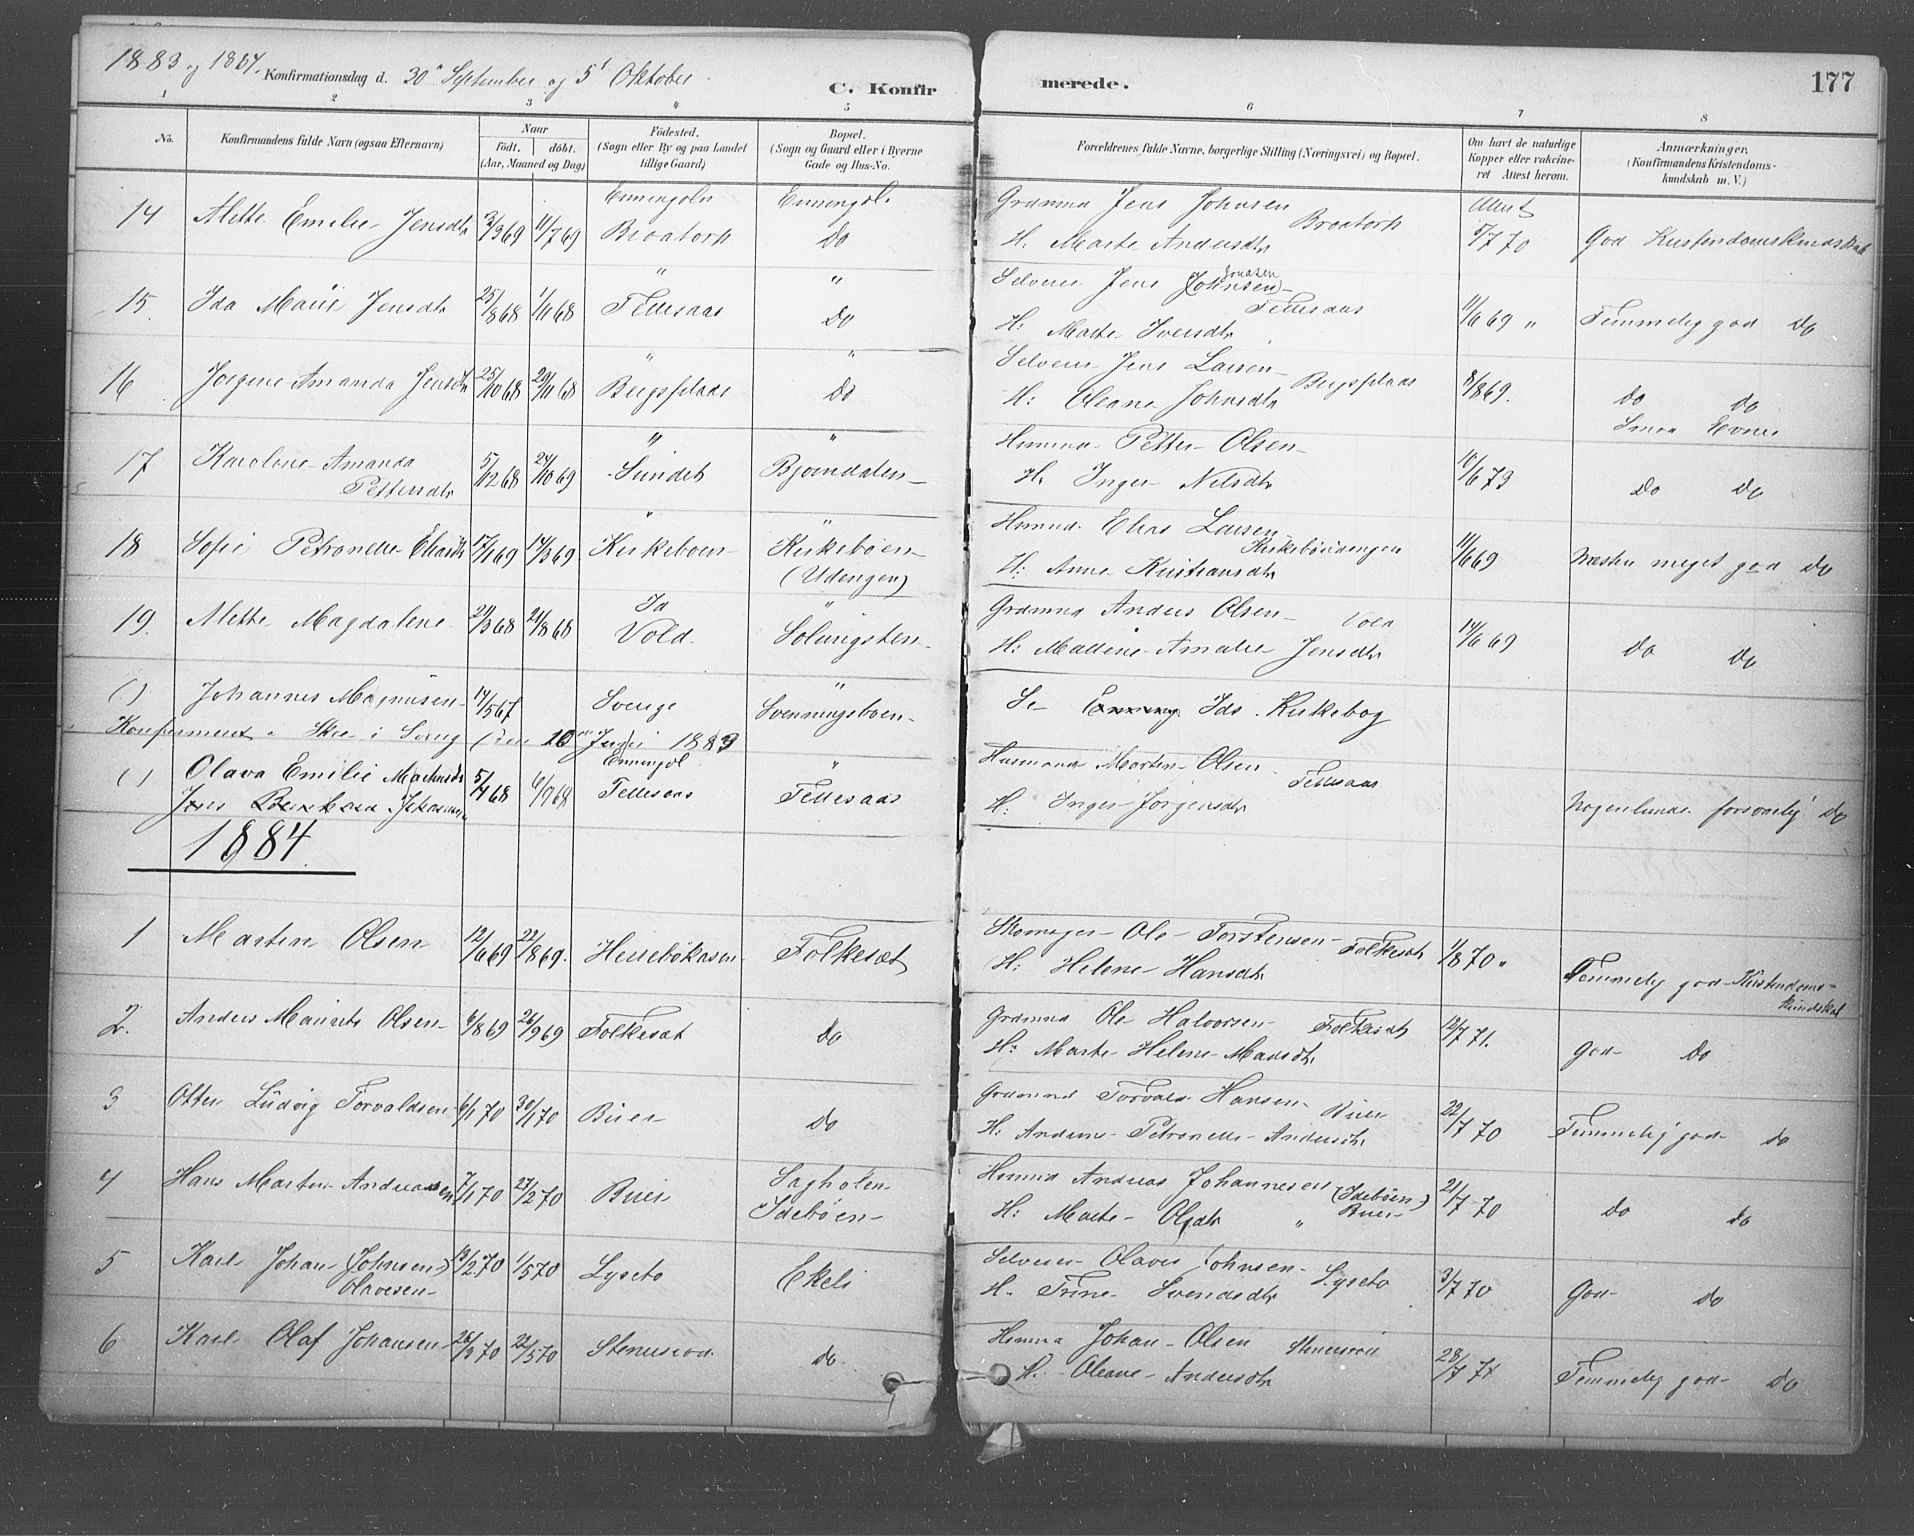 1883 og 1884.
Konfirmationsdag d. 30 September og 5 Oktober.
C. Konfirmerede.
177
1 2 3 4 5 6 7 8
No.
Konfirmandens fulde Navn (ogsaa Efternavn)
Naar
født. døbt.
(Aar, Maaned og Dag)
Fødested.
(Sogn eller By og paa Landet
tillige Gaard)
Bopæl.
(Sogn og Gaard eller i Byerne
Gade og Hus-No.
Forældrenes fulde Navne, borgerlige Stilling (Næringsvei) og Bopæl.
Om havt de naturlige
Kopper eller vakcine-
ret Attest herom.
Anmærkninger.
(Konfirmandens Kristendoms-
kundskab m. V.)
14 Alette Emilie Jensdtr 2/3 69 11/7 69 Enningdln Enningdl. Grdmnd Jens Johnsen Attest
Braatorp Do H. Marte Andersdtr Braatorp 5/7 70 God Kristendomskundskab
15. Ida Marie Jensdtr 25/8 68 1/11 68 " Tellesaas " Do Selveier Jens (Johnsen) Jonasen
H: Marte Iversdtr Tellesaas 11/6 69 " Temmelig god Do
16 Jørgine Amanda Jensdtr 25/10 68 29/11 68 " Bergsplads " Do Selveier Jens Larsen
H: Oleane Johnsdtr Bergsplads 8/8 69. Do Do
Smaa Evner
17 Karoline Amanda " " Husmnd. Petter Olsen
Pettersdtr 5/12 68 24/10 69 Sundet Bjørndalen H. Inger Nilsdtr 10/6 73 Do Do
18 Sofie Petronelle Eliasdtr 17/1 69 14/3 69 " Kirkebøen " Kirkebøen Husmnd. Elias Larsen
(Udengen) H: Anne Kristiansdtr Kirkebøeengen 11/6 69 Næsten meget god Do
19. Alette Magdalene 29/3 68 21/8 68 Id " Grdmnd Anders Olsen
Vold. Solungsten H: Mattine Amalie Jensdtr Vold 14/6 69 Do Do
( ) Johannes Magnusen 14/5 67 Sverige " Svenningsbøen Se Enning. Ids Kirkebog
Konfirmeret i Skee i Sverig (den 10 Juni 1883
( ) Olava Emilie Martinsdtr 5/4 68 6/9 68 Enningdl " Husmand Martin Olsen
Jens Bernhard Johansen Tellesaas Tellesaas H: Inger Jørgensdtr Tellesaas Nogenlunde forsvarlig Do
1884.
1 Martin Olsen 12/6 69 22/8 69. Herrebøkasen Folkesæt Skomager Ole Torstensen
H: Helene Hansdtr Folkesæt 1/8 70 " Temmelig god Kristendoms-
kundskab
2. Anders Maurits Olsen 6/8 69 26/9 69 Folkesæt Do Grdmnd Ole Halvorsen Folkesæt 12/7 71.
H: Marte Helene Mansdtr God Do
3 Otter Ludvig Torvaldsen 6/1 70 30/1 70 Buer Do Grdmnd Torvald Hansen Buer 22/7 70
H: Andrine Petronelle Andersdtr Temmelig god Do
4 Hans Martin Andreassen 7/1 70 27/2 70 Buer Sagholen Husmnd Andreas Johannesen (Idebøen)
Idebøen H: Marte Olsdtr " Buer 21/7 70 Do Do
5 Karl Johan (Johnsen) 19/2 70 1/5 70 Lyseto Ekeli Selveier Olaves Johnsen
Olavesen H. Trine Svendsdtr Lyseto 3/7 70 God Do
6 Karl Olaf Johansen 26/3 70 22/5 70 Stenerød Do. Husmnd Johan Olsen Stenerød
H. Oleane Andersdtr 28/7 71 Temmelig god Do